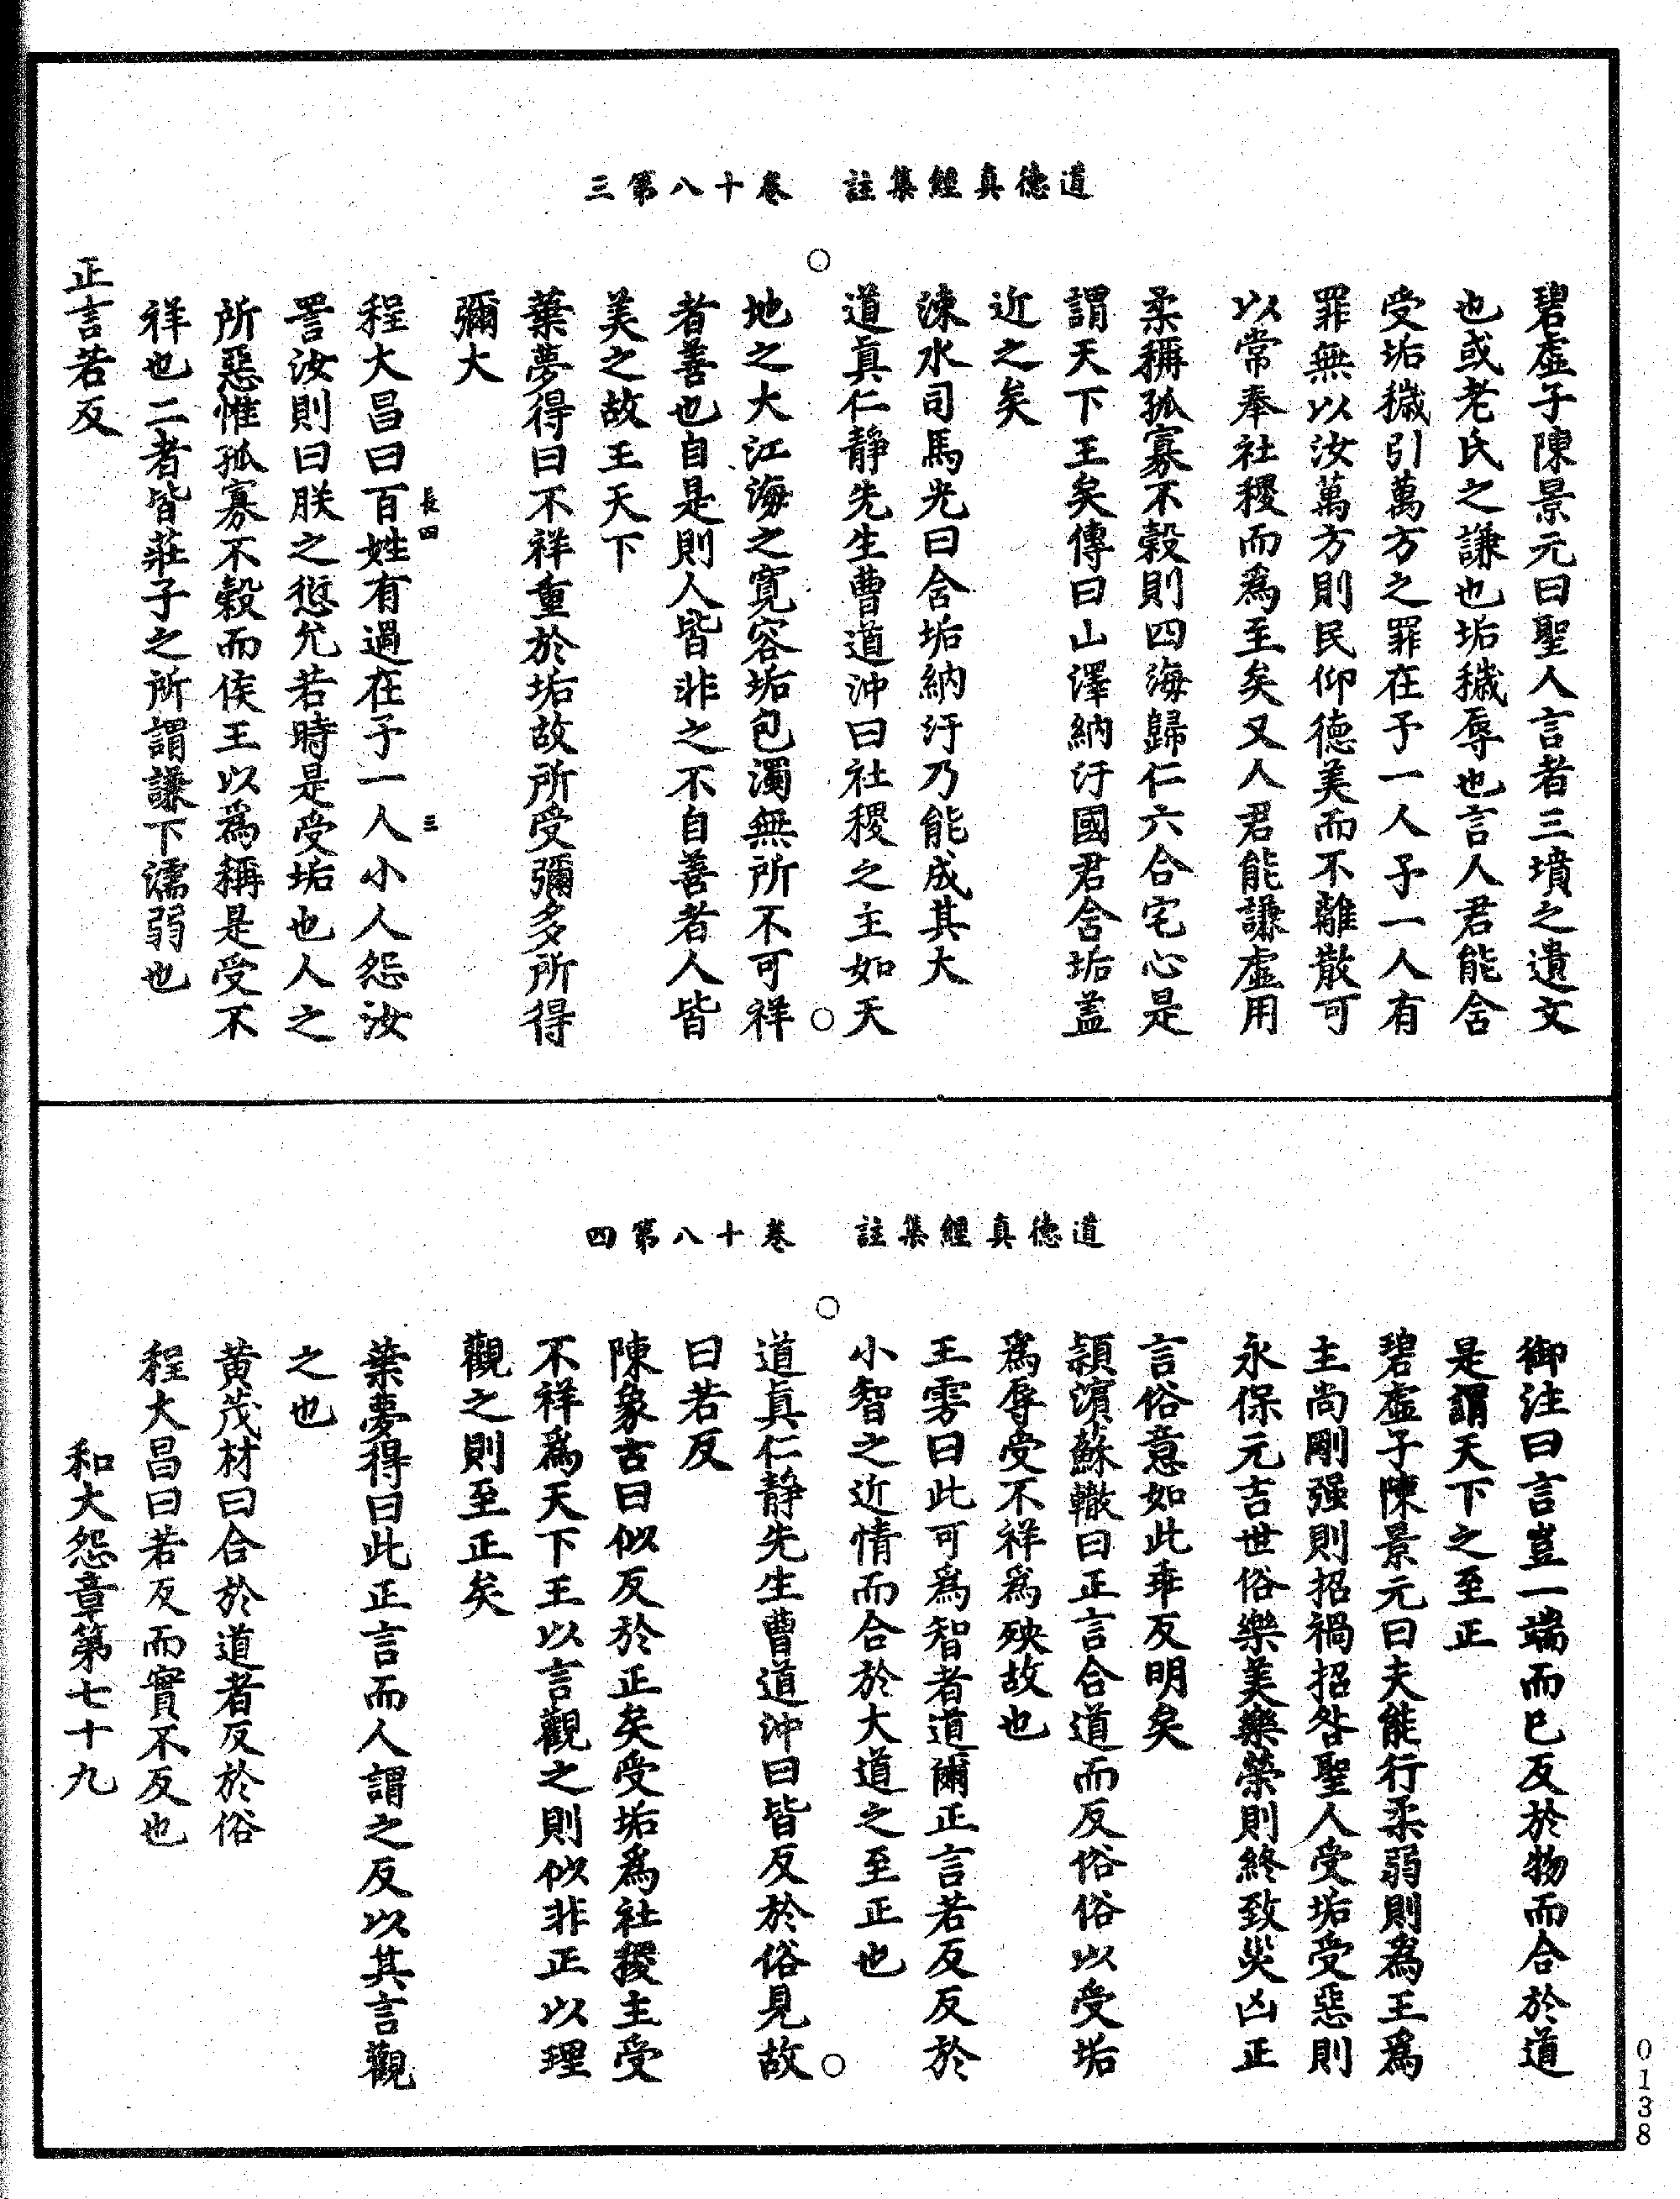 道德真經集註　卷十八第三
碧虛子陳景元曰聖人言者三墳之遺文
也或老氏之謙也垢穢辱也言人君能含
受垢穢引萬方之罪在予一人予一人有
罪無以汝萬方則民仰德美而不離散可
以常奉社稷而爲至矣又人君能謙虛用
柔稱孤寡不穀則四海歸仁六合宅心是
謂天下王矣傳曰山澤納汙國君含垢蓋
近之矣
涑水司馬光曰含垢納汙乃能成其大
道真仁靜先生曹道沖曰社稷之主如天
地之大江海之寬容垢包濁無所不可祥
者善也自是則人皆非之不自善者人皆
美之故王天下
葉夢得曰不祥重於垢故所受彌多所得
彌大
長四　三
程大昌曰百姓有過在予一人小人怨汝
詈汝則曰朕之愆允若時是受垢也人之
所惡惟孤寡不穀而侯王以爲稱是受不
祥也二者皆莊子之所謂謙下濡弱也
正言若反
道德真經集註　卷十八第四
御注曰言豈一端而已反於物而合於道
是謂天下之至正
碧虛子陳景元曰夫能行柔弱則爲王爲
主尚剛强則招禍招咎聖人受垢受惡則
永保元吉世俗樂美樂榮則終致災凶正
言俗意如此乖反明矣
潁濱蘇轍曰正言合道而反俗俗以受垢
爲辱受不祥爲殃故也
王雱曰此可爲智者道爾正言若反反於
小智之近情而合於大道之至正也
道真仁靜先生曹道沖曰皆反於俗見故
曰若反
陳象古曰似反於正矣受垢爲社稷主受
不祥爲天下王以言觀之則似非正以理
觀之則至正矣
葉夢得曰此正言而人謂之反以其言觀
之也
黃茂材曰合於道者反於俗
程大昌曰若反而實不反也
和大怨章第七十九
0138